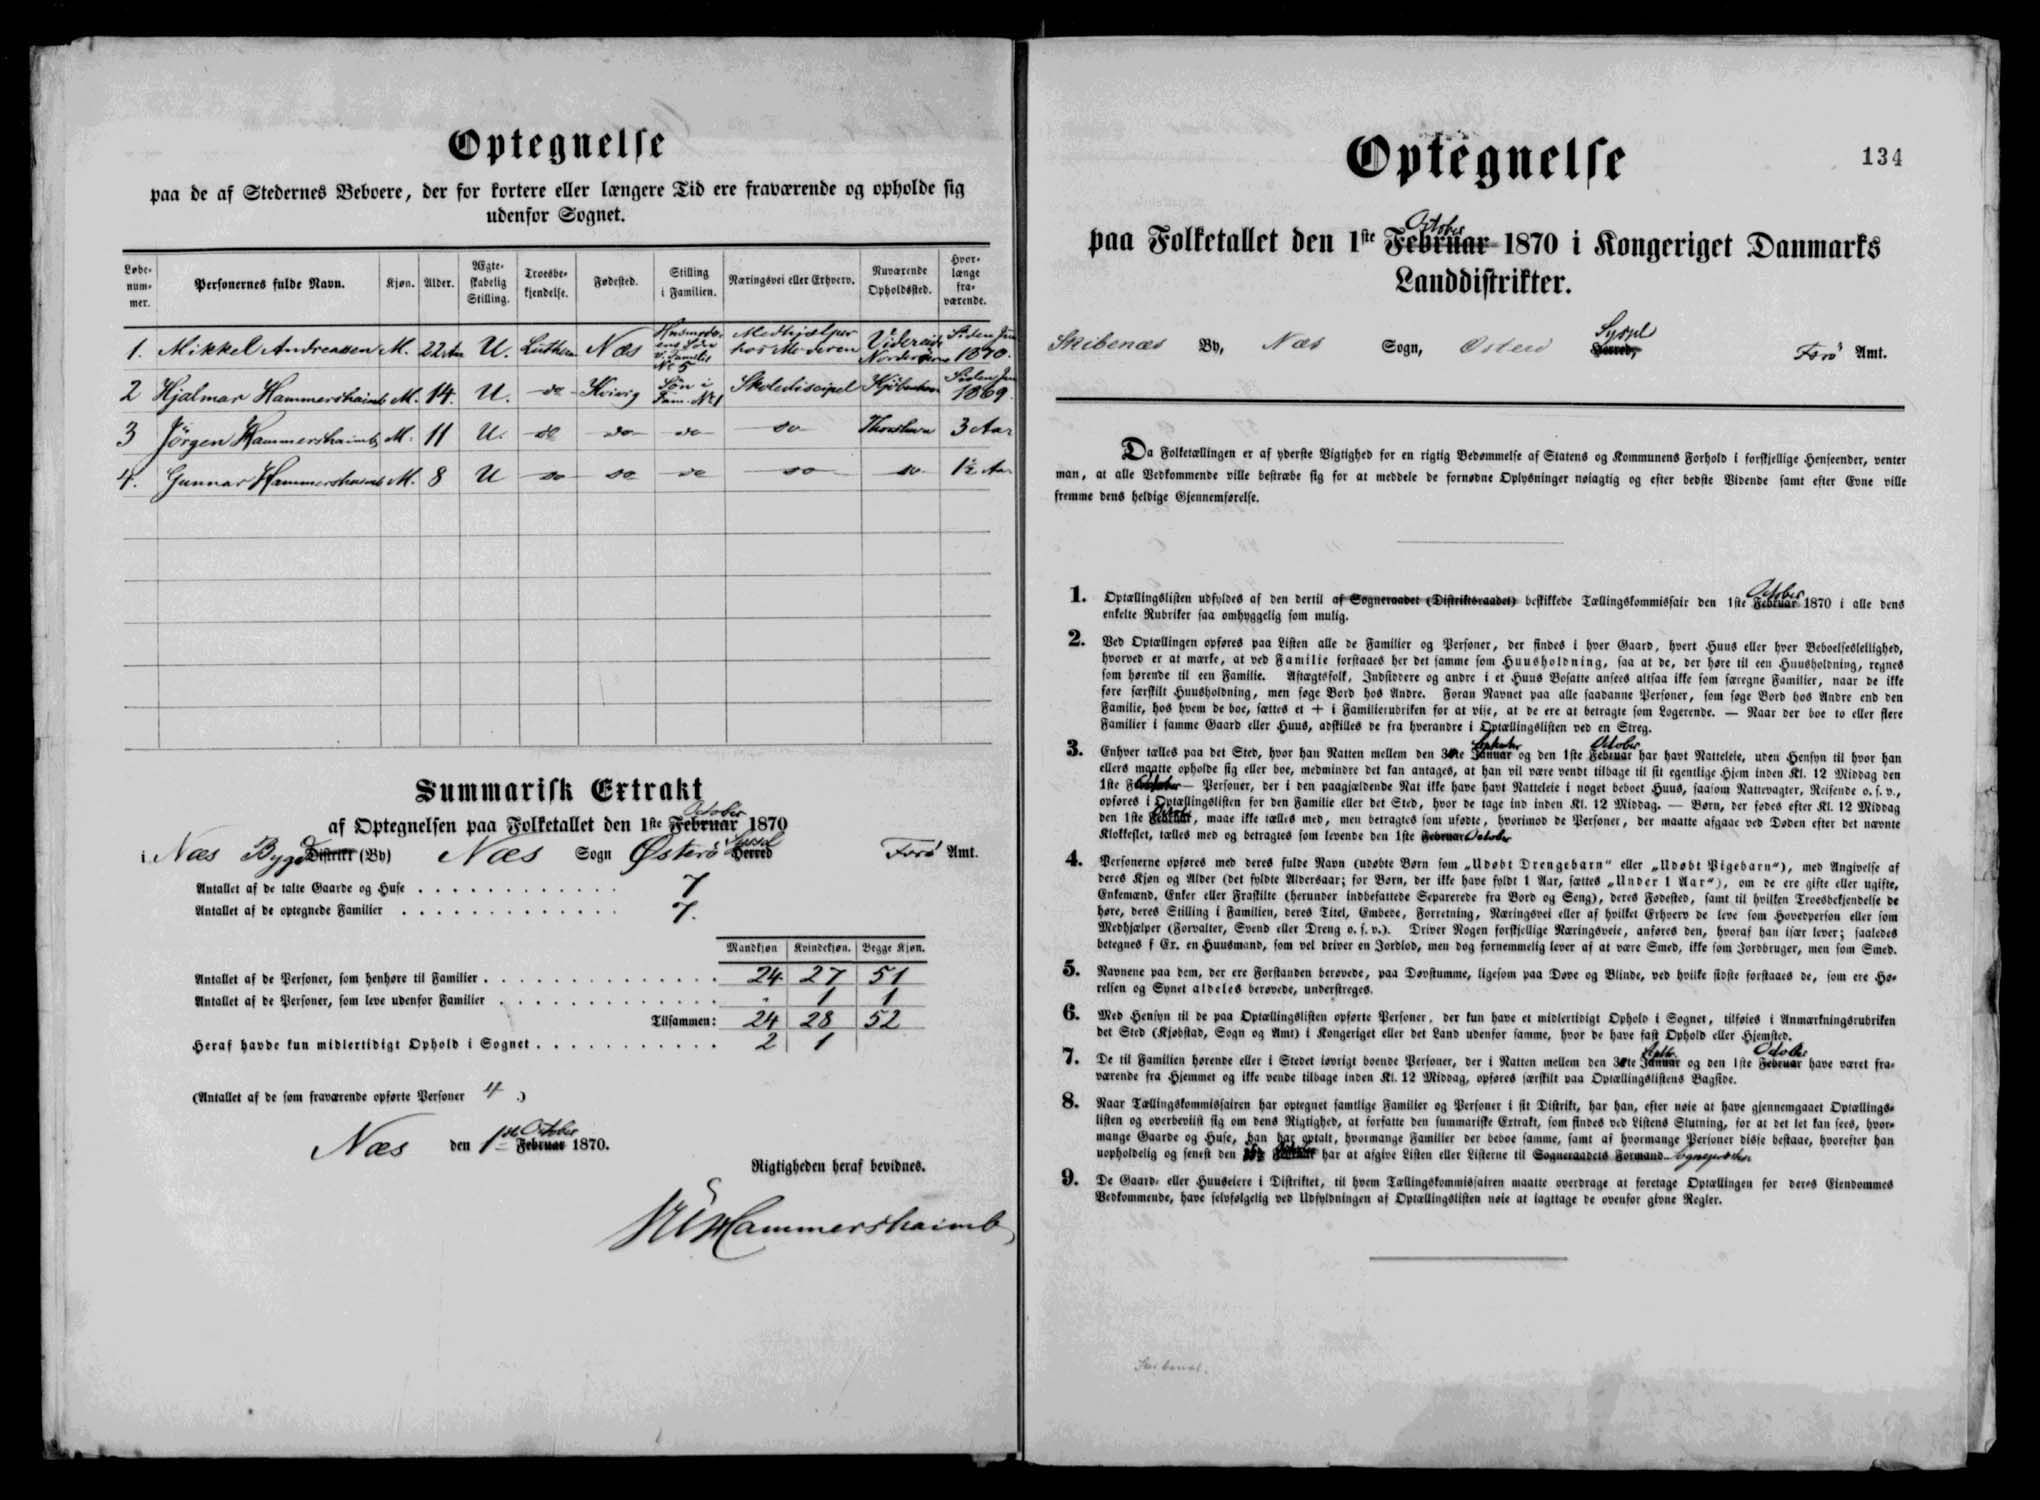 Optegnelse
paa de af Stedernes Beboere, der for kortere eller længere Tid ere fraværende og opholde sig
udenfor Sognet.
Løbenummer. Personernes fulde Navn. Kjøn. Alder. Ægteskabelig Stilling. Troesbekjendelse. Fødested. Stilling i Familien. Næringsvei eller Erhverv. Nuværende Opholdssted. Hvorlænge fraværende.
1. Mikkel Andreassen M. 22 Aar U. Luthersk Næs Søn Familie No 5 Medhjælper hos Moderen Videreide Norderøerne Siden 1870.
2 Hjalmar Hammershaimb M. 14. U. do Kvivig Søn i Fam. No 1 Skolediscipel Kjöbenhavn Siden 1869.
3 Jörgen Hammershaimb M. 11 U. do do do do Thorshavn 3 Aar
4. Gunnar Hammershaimb M. 8 U do do do do do 1½ Aar
Summarisk Extrakt
October
af Optegnelsen paa Folketallet den 1ste Februar 1870
i Næs Bygd Distrikt (By) Næs Sogn Østerö Syssel Herred Færö Amt.
Antallet af de talte Gaarde og Huse . . . . 7
Antallet af de optegnede Familier . . . . 7.
Mandkjøn Kvindekjøn. Begge Kjøn.
Antallet af de Personer, som henhøre til Familier . . . . 24 27 51
Antallet af de Personer, som leve udenfor Familier . . . . " 1 1
Tilsammen: 24 28 52
Heraf havde kun midlertidigt Ophold i Sognet . . . . 2 1
(Antallet af de som fraværende opførte Personer 4 .)
Næs den 1ste October Februar 1870.
Rigtigheden heraf bevidnes.
Hammershaimb
134
Optegnelse
October
paa Folketallet den 1ste Februar 1870 i Kongeriget Danmarks
Landdistrikter.
Skibenæs By, Næs Sogn, Österö Syssel Herred, Færö Amt.
Da Folketællingen er af yderste Vigtighed for en rigtig Bedømmelse af Statens og Kommunens Forhold i forskjellige Henseender, venter
man, at alle Vedkommende ville bestræbe sig for at meddele de fornødne Oplysninger nøiagtig og efter bedste Vidende samt efter Evne ville
fremme dens heldige Gjennemførelse.
1. Optællingslisten udfyldes af den dertil af Sogneraadet (Distriktsraadet) beskikkede Tællingskommissair den 1ste October Februar 1870 i alle dens
enkelte Rubriker saa omhyggelig som mulig.
2. Ved Optællingen opføres paa Listen alle de Familier og Personer, der findes i hver Gaard, hvert Huus eller hver Beboelseslellighed,
hvorved er at mærke, at ved Familie forstaaes her det samme som Huusholdning, saa at de, der høre til een Huusholdning, regnes
som hørende til een Familie. Aftægtsfolk, Indsiddere og andre i et Huus Bosatte ansees altsaa ikke som særegne Familier, naar de ikke
føre særskilt Huusholdning, men søge Bord hos Andre. Foran Navnet paa alle saadanne Personer, som søge Bord hos Andre end den
Familie, hos hvem de boe, sættes et + i Familierubriken for at vise, at de ere at betragte som Logerende. — Naar der boe to eller flere
Familier i samme Gaard eller Huus, adskilles de fra hverandre i Optællingslisten ved en Streg.
3. Enhver tælles paa det Sted, hvor han Natten mellem den 30te September Januar og den 1ste October Februar har havt Natteleie, uden Hensyn til hvor han
ellers maatte opholde sig eller boe, medmindre det kan antages, at han vil være vendt tilbage til sit egentlige Hjem inden Kl. 12 Middag den
1ste October — Personer, der i den paagjældende Nat ikke have havt Natteleie i noget beboet Huus, saasom Nattevagter, Reisende o. s. v.,
opføres i Optællingslisten for den Familie eller det Sted, hvor de tage ind inden Kl. 12 Middag. — Børn, der fødes efter Kl. 12 Middag
den 1ste October Februar, maae ikke tælles med, men betragtes som ufødte, hvorimod de Personer, der maatte afgaae ved Døden efter det nævnte
Klokkeslet, tælles med og betragtes som levende den 1ste Februar October
4. Personerne opføres med deres fulde Navn (udøbte Børn som „Udøbt Drengebarn“ eller „Udøbt Pigebarn“), med Angivelse af
deres Kjøn og Alder (det fyldte Aldersaar; for Børn, der ikke have fyldt 1 Aar, sættes „Under 1 Aar“), om de ere gifte eller ugifte,
Enkemænd, Enker eller Fraskilte (herunder indbefattede Separerede fra Bord og Seng), deres Fødested, samt til hvilken Troesbekjendelse de
høre, deres Stilling i Familien, deres Titel, Embede, Forretning, Næringsvei eller af hvilket Erhverv de leve som Hovedperson eller som
Medhjælper (Forvalter, Svend eller Dreng o. s. v.). Driver Nogen forskjellige Næringsveie, anføres den, hvoraf han især lever; saaledes
betegnes f Ex. en Huusmand, som vel driver en Jordlod, men dog fornemmelig lever af at være Smed, ikke som Jordbruger, men som Smed.
5. Navnene paa dem, der ere Forstanden berøvede, paa Døvstumme, ligesom paa Døve og Blinde, ved hvilke sidste forstaaes de, som ere Hørelsen
og Synet aldeles berøvede, understreges.
6. Med Hensyn til de paa Optællingslisten opførte Personer, der kun have et midlertidigt Ophold i Sognet, tilføies i Anmærkningsrubriken
det Sted (Kjøbstad, Sogn og Amt) i Kongeriget eller det Land udenfor samme, hvor de have fast Ophold eller Hjemsted.
7. De til Familien hørende eller i Stedet iøvrigt boende Personer, der i Natten mellem den 30te Septbr. Januar og den 1ste October Februar have været fraværende
fra Hjemmet og ikke vende tilbage inden Kl. 12 Middag, opføres særskilt paa Optællingslistens Bagside.
8. Naar Tællingskommissairen har optegnet samtlige Familier og Personer i sit Distrikt, har han, efter nøie at have gjennemgaaet Optællingslisten
og overbeviist sig om dens Rigtighed, at forfatte den summariske Extrakt, som findes ved Listens Slutning, for at det let kan sees, hvormange
Gaarde og Huse, han har optalt, hvormange Familier der beboe samme, samt af hvormange Personer disse bestaae, hvorefter han
uopholdelig og senest den October har at afgive Listen eller Listerne til Sogneraadets Formand Sognepræsten
9. De Gaard- eller Huuseiere i Distriktet, til hvem Tællingskommissairen maatte overdrage at foretage Optællingen for deres Eiendommes
Vedkommende, have selvfølgelig ved Udfyldningen af Optællingslisten nøie at iagttage de ovenfor givne Regler.